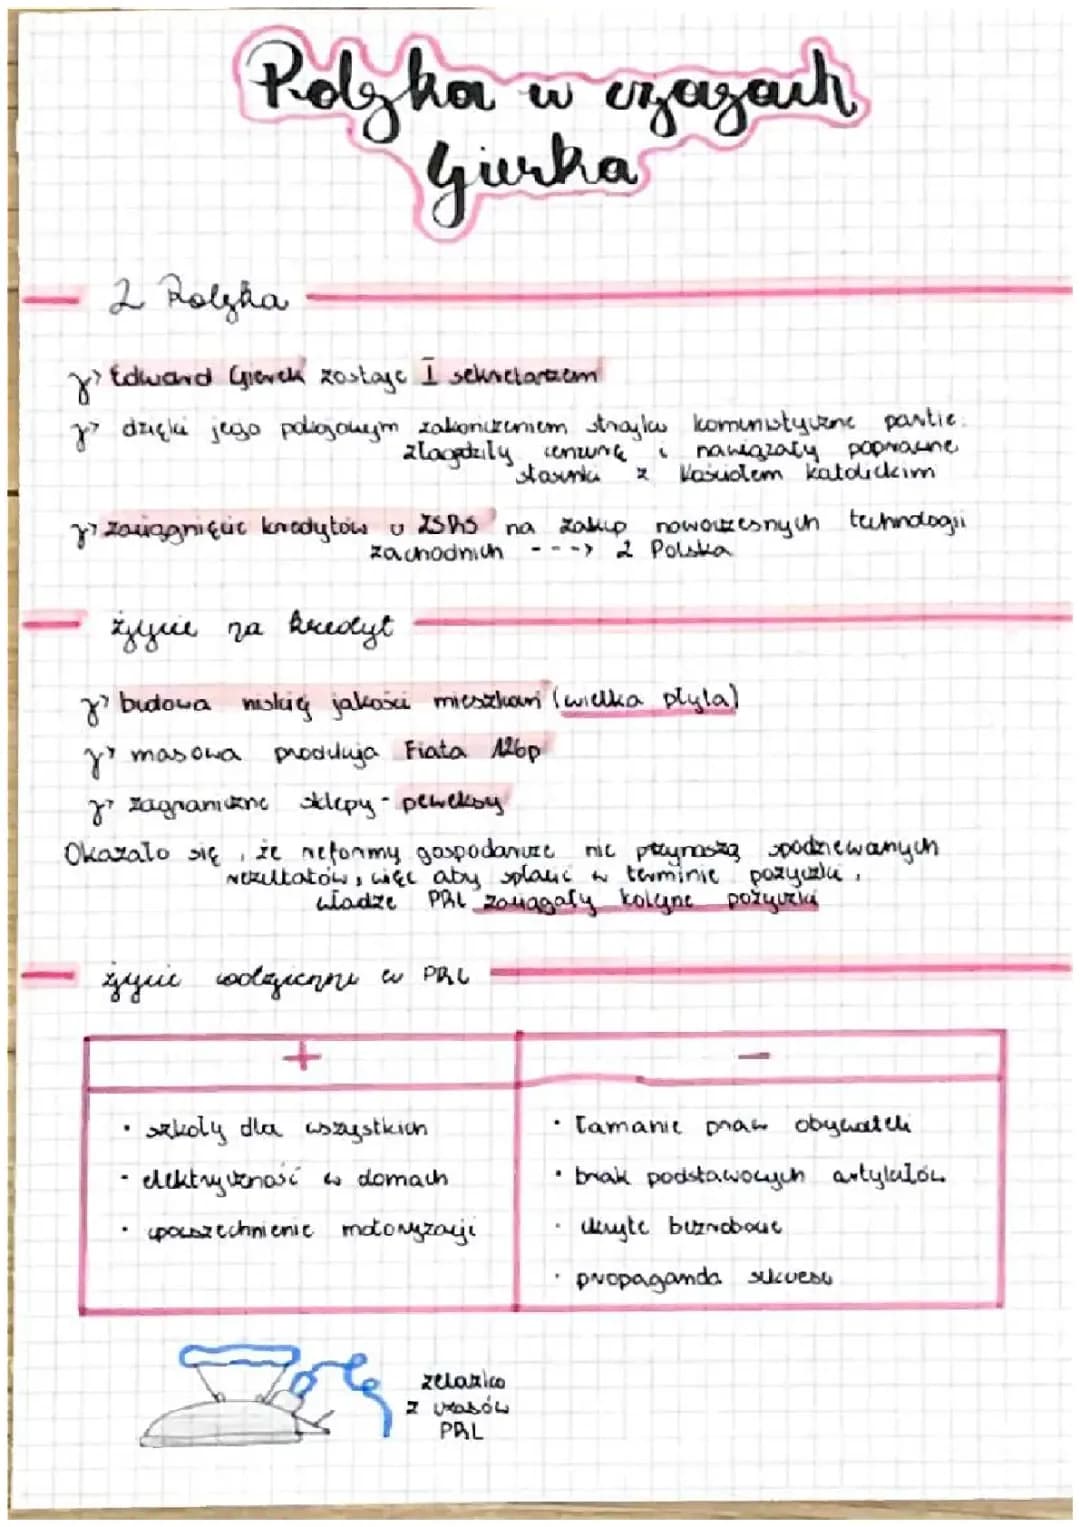 Polska w czasach
Gierka
2 Polska
Edward Gierek zostaje I sekretarzem
dzięki jego pokojowym zakończeniem strajków komunistyczne partie:
złagodziły cenzurę i nawiązały poprawne
stosunki z Kościołem katolickim
zaciągnięcie kredytów u ZSRS na zakup nowoczesnych technologii
zachodnich ---> 2 Polska
życie na kredyt
budowa niskiej jakości mieszkań (wielka płyta)
masowa produkcja Fiata 126p
zagraniczne sklepy - peweksy
Okazało się, że reformy gospodarcze nie przynoszą spodziewanych
rezultatów, więc aby spłacić w terminie pożyczki,
władze PRL zaciągały kolejne pożyczki
życie codzienne w PRL
+ −
• szkoły dla wszystkich
• elektryczność w domach
• upowszechnienie motoryzacji
• łamanie praw obywateli
• brak podstawowych artykułów
• ukryte bezrobocie
• propaganda sukcesu
żelazko
z czasów
PRL